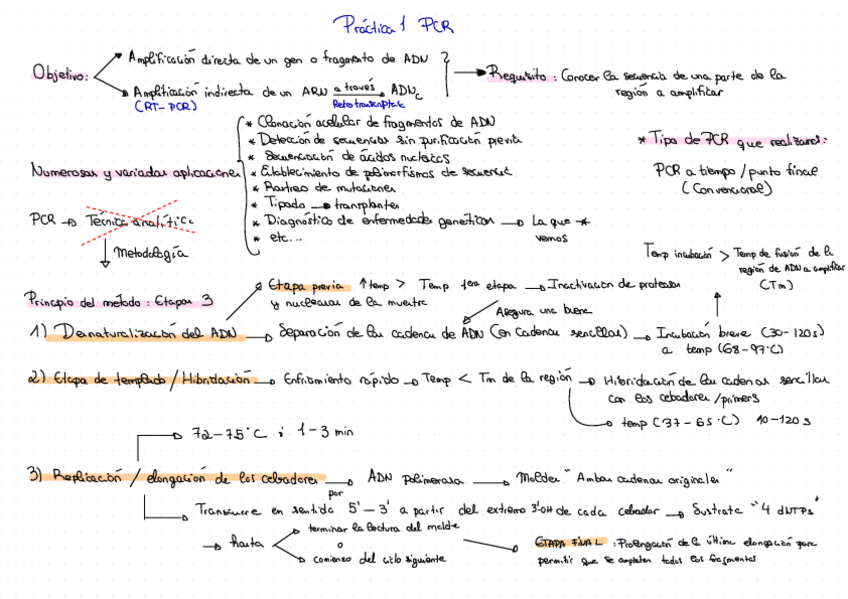 Práctica 1 PCR
Objetivo:
Amplificación directa de un gen o fragmento de ADN
Amplificación indirecta de un ARN a través ADNc
(RT-PCR) Retrotranscriptasa
Requisito: Conocer la secuencia de una parte de la
región a amplificar
Numerosas y variadas aplicaciones
* Clonación acelular de fragmentos de ADN
* Detección de secuencias sin purificación previa
* Secuenciación de ácidos nucleicos
* Establecimiento de polimorfismos de secuencia
* Rastreo de mutaciones
* Tipado → transplantes
* Diagnóstico de enfermedades genéticas → La que *
vemos
* etc...
* Tipo de PCR que realizamos:
PCR a tiempo / punto final
(Convencional)
PCR → Técnica analítica
↓ Metodología
Temp incubación > Temp de fusión de la
región de ADN a amplificar
(Tm)
Principio del metodo: Etapas 3
Etapa previa ↑temp > Temp 1era etapa → Inactivación de proteasas
y nucleasas de la muestra
Asegura una buena
1) Desnaturalización del ADN → Separación de las cadenas de ADN (en cadenas sencillas) → Incubación breve (30-120s)
a temp (68-97°C)
2) Etapa de templado / Hibridación → Enfriamiento rápido → Temp < Tm de la región → Hibridación de las cadenas sencillas
con los cebadores / primers
temp (37-65°C) 10-120s
72-75°C ; 1-3 min
3) Replicación / elongación de los cebadores → por ADN polimerasa → Moldes "Ambas cadenas originales"
Transcurre en sentido 5'-3' a partir del extremo 3'OH de cada cebador → Sustrato "4 dNTPs"
→ hasta
terminar la lectura del molde
o
comienzo del ciclo siguiente
ETAPA FINAL: Prolongación de la última elongación para
permitir que se completen todos los fragmentos